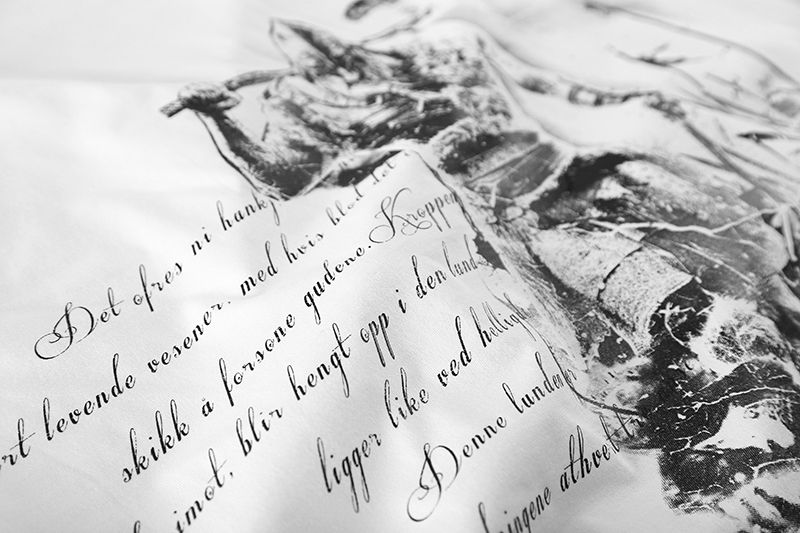 Det ofres ni hankj
rt levende vesener, med hvis blod det
skikk å forsone gudene. Kroppen
imot, blir hengt opp i den lund
ligger like ved hellig
Denne lunden
ingene at hvert